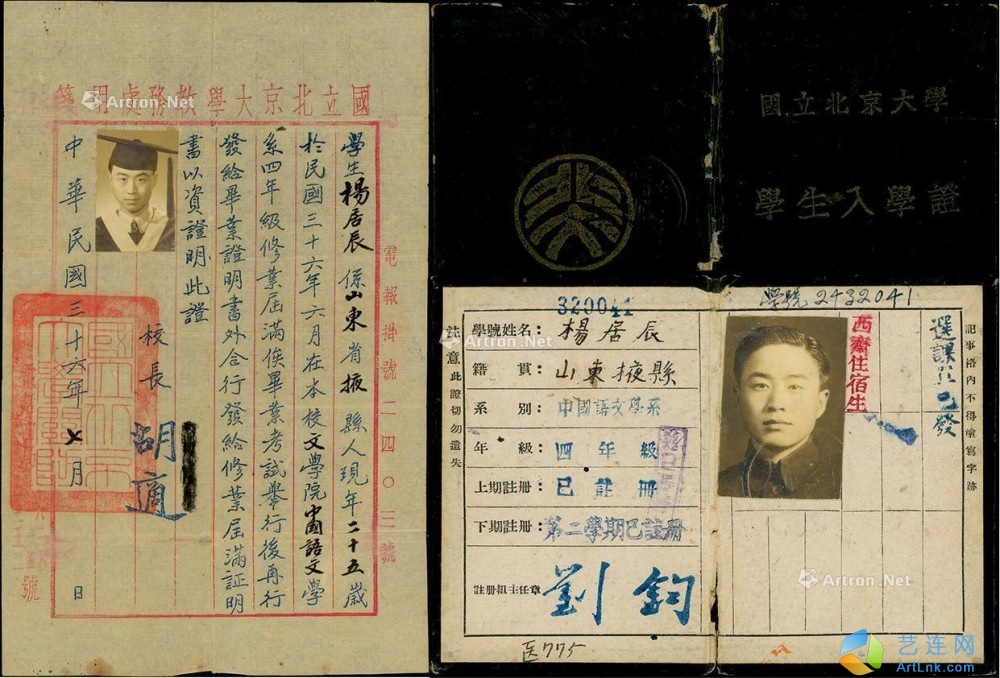 國立北京大學教務處用箋
學生楊居辰係山東省掖縣人現年二十五歲
於民國三十六年六月在本校文學院中國語文學
系四年級修業屆滿俟畢業考試舉行後再行
發給畢業證明書外合行發給修業屆滿証明
書以資證明此證
校長 胡適
中華民國三十六年 月 日
電報掛號二四〇三號
國立北京大學
學生入學證
學號2432041
320041
學號姓名：楊居辰
籍貫：山東掖縣
系別：中國語文學系
年級：四年級
上期註冊：已註冊
下期註冊：第二學期已註冊
註冊組主任章 劉鈞
注意此證切勿遺失
西齋住宿生
選課單已發
記事格內不得塗寫字跡
医775
Artron.Net
Artron.Net
Artron.Net
Artron.Net
Artron.Net
艺连网
ArtLnk.com